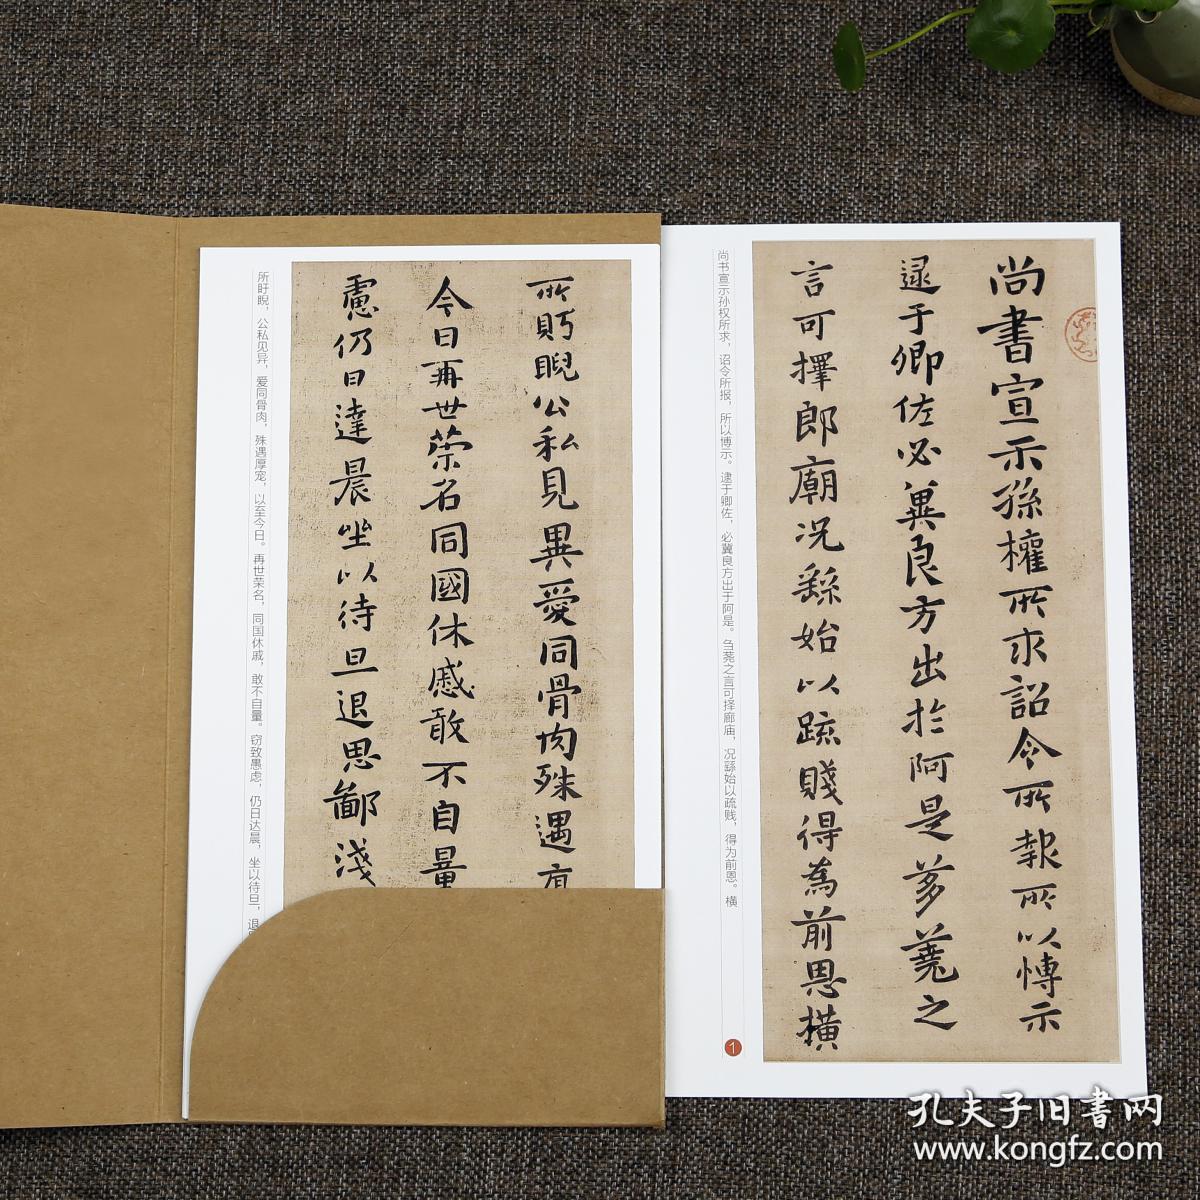 尚書宣示孫權所求詔令所報所以博示
逮于卿佐必冀良方出於阿是芻蕘之
言可擇郎廟况繇始以疏賤得為前恩横
尚书宣示孙权所求，诏令所报，所以博示。逮于卿佐，必冀良方出于阿是。刍荛之言可择廊庙，况繇始以疏贱，得为前恩。横
1
所盱睨公私見異愛同骨肉殊遇厚
今日再世荣名同國休慼敢不自量
慮仍日達晨坐以待旦退思鄙淺
所盱睨，公私见异，爱同骨肉，殊遇厚宠，以至今日。再世荣名，同国休戚，敢不自量。窃致愚虑，仍日达晨，坐以待旦，退
孔夫子旧書网
www.kongfz.com